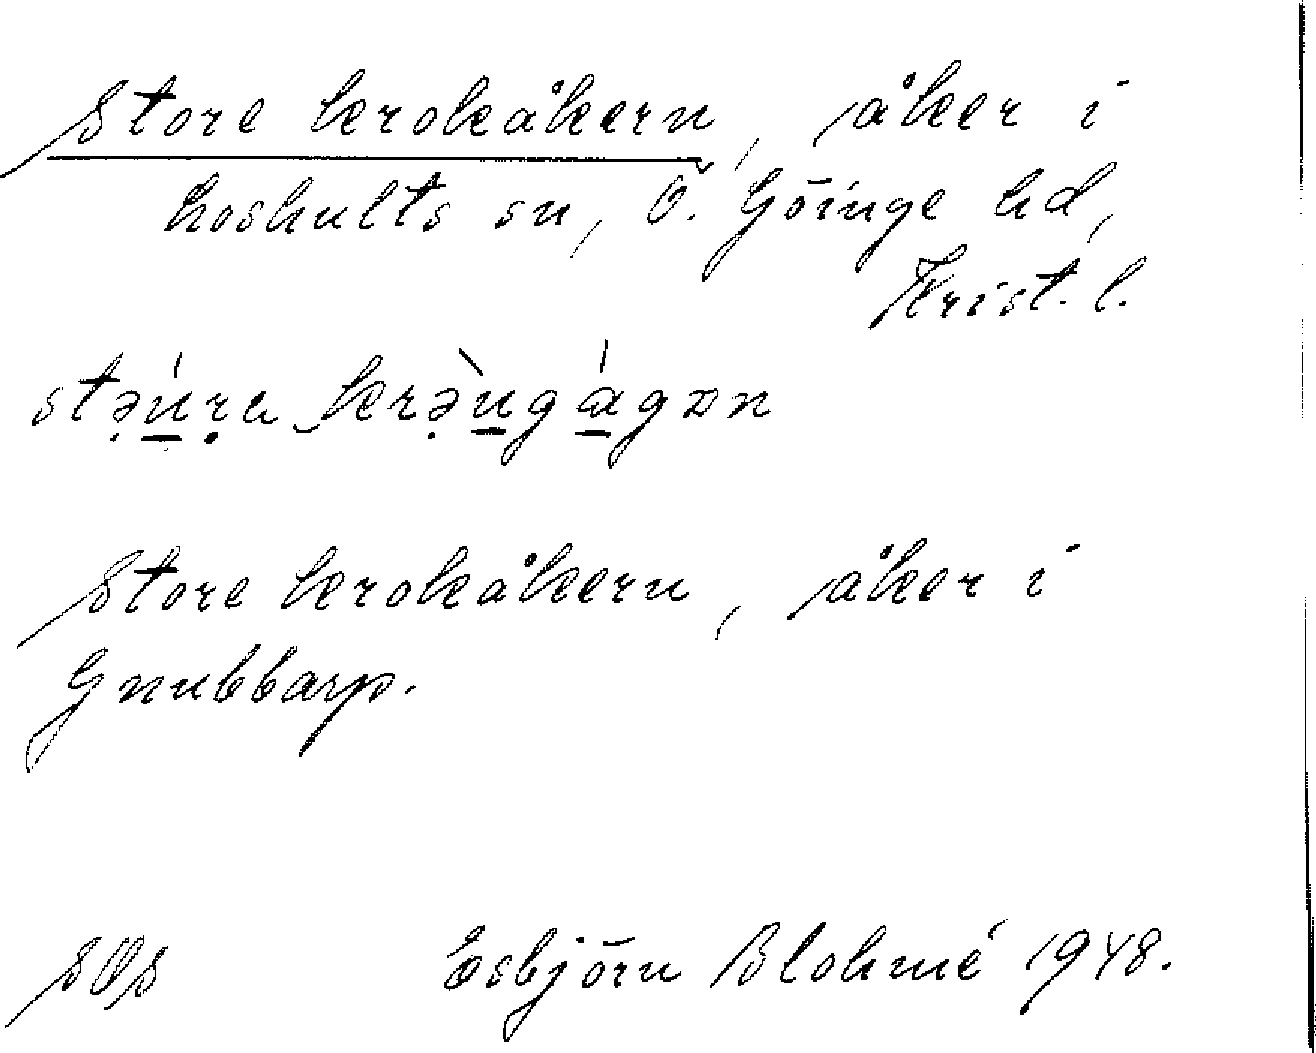 Store krokåkern, åker i
Loshults sn, Ö. Göinge hd,
Krist. l.
Store krokåkern, åker i
Gnubbarp.
Esbjörn Blohmé 1948.